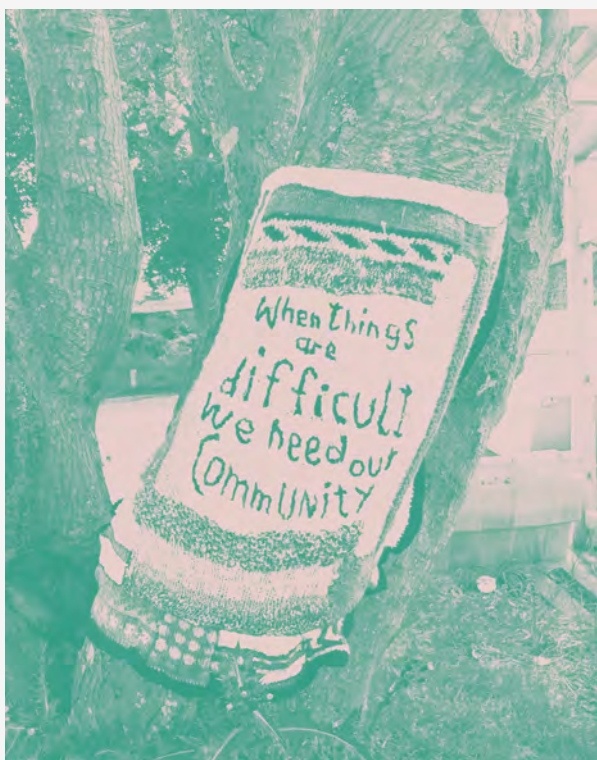 When things
are
difficult
We need our
CommUNity